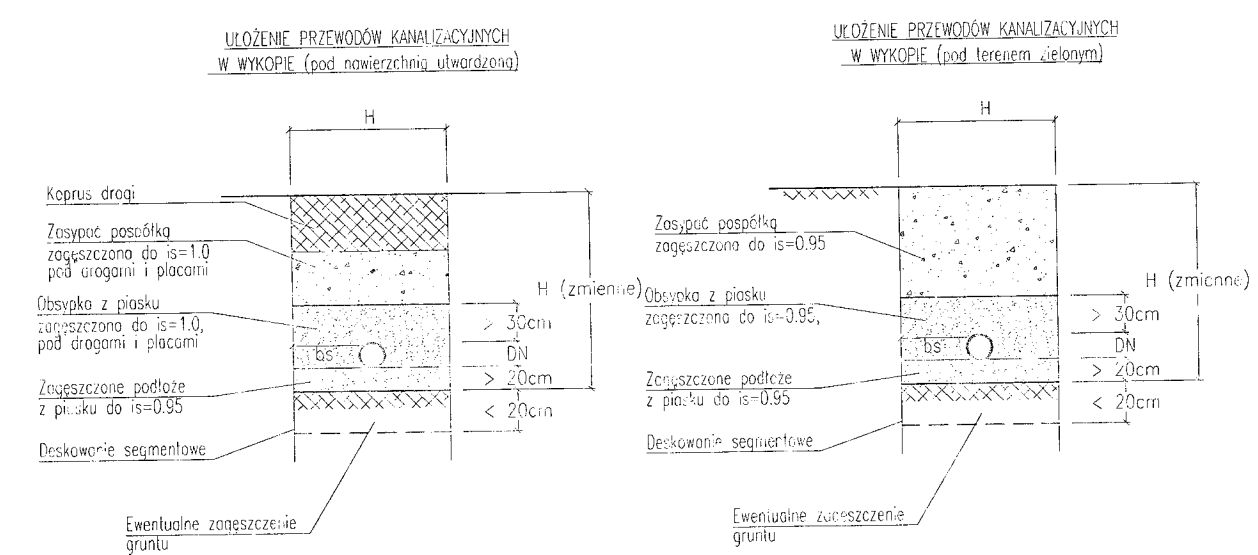 UŁOŻENIE PRZEWODÓW KANALIZACYJNYCH
W WYKOPIE (pod nawierzchnią utwardzoną)
H
Koprus drogi
Zasypać pospółką
zagęszczona do is=1.0
pod drogami i placami
Obsypka z piasku
zagęszczona do is=1.0,
pod drogami i placami
bs
Zagęszczone podłoże
z piasku do is=0.95
Deskowanie segmentowe
Ewentualne zagęszczenie
gruntu
H (zmienne)
> 30cm
DN
> 20cm
< 20cm
UŁOŻENIE PRZEWODÓW KANALIZACYJNYCH
W WYKOPIE (pod terenem zielonym)
H
Zasypać pospółką
zagęszczona do is=0.95
Obsypka z piasku
zagęszczona do is=0.95,
bs
Zagęszczone podłoże
z piasku do is=0.95
Deskowanie segmentowe
Ewentualne zagęszczenie
gruntu
H (zmienne)
> 30cm
DN
> 20cm
< 20cm